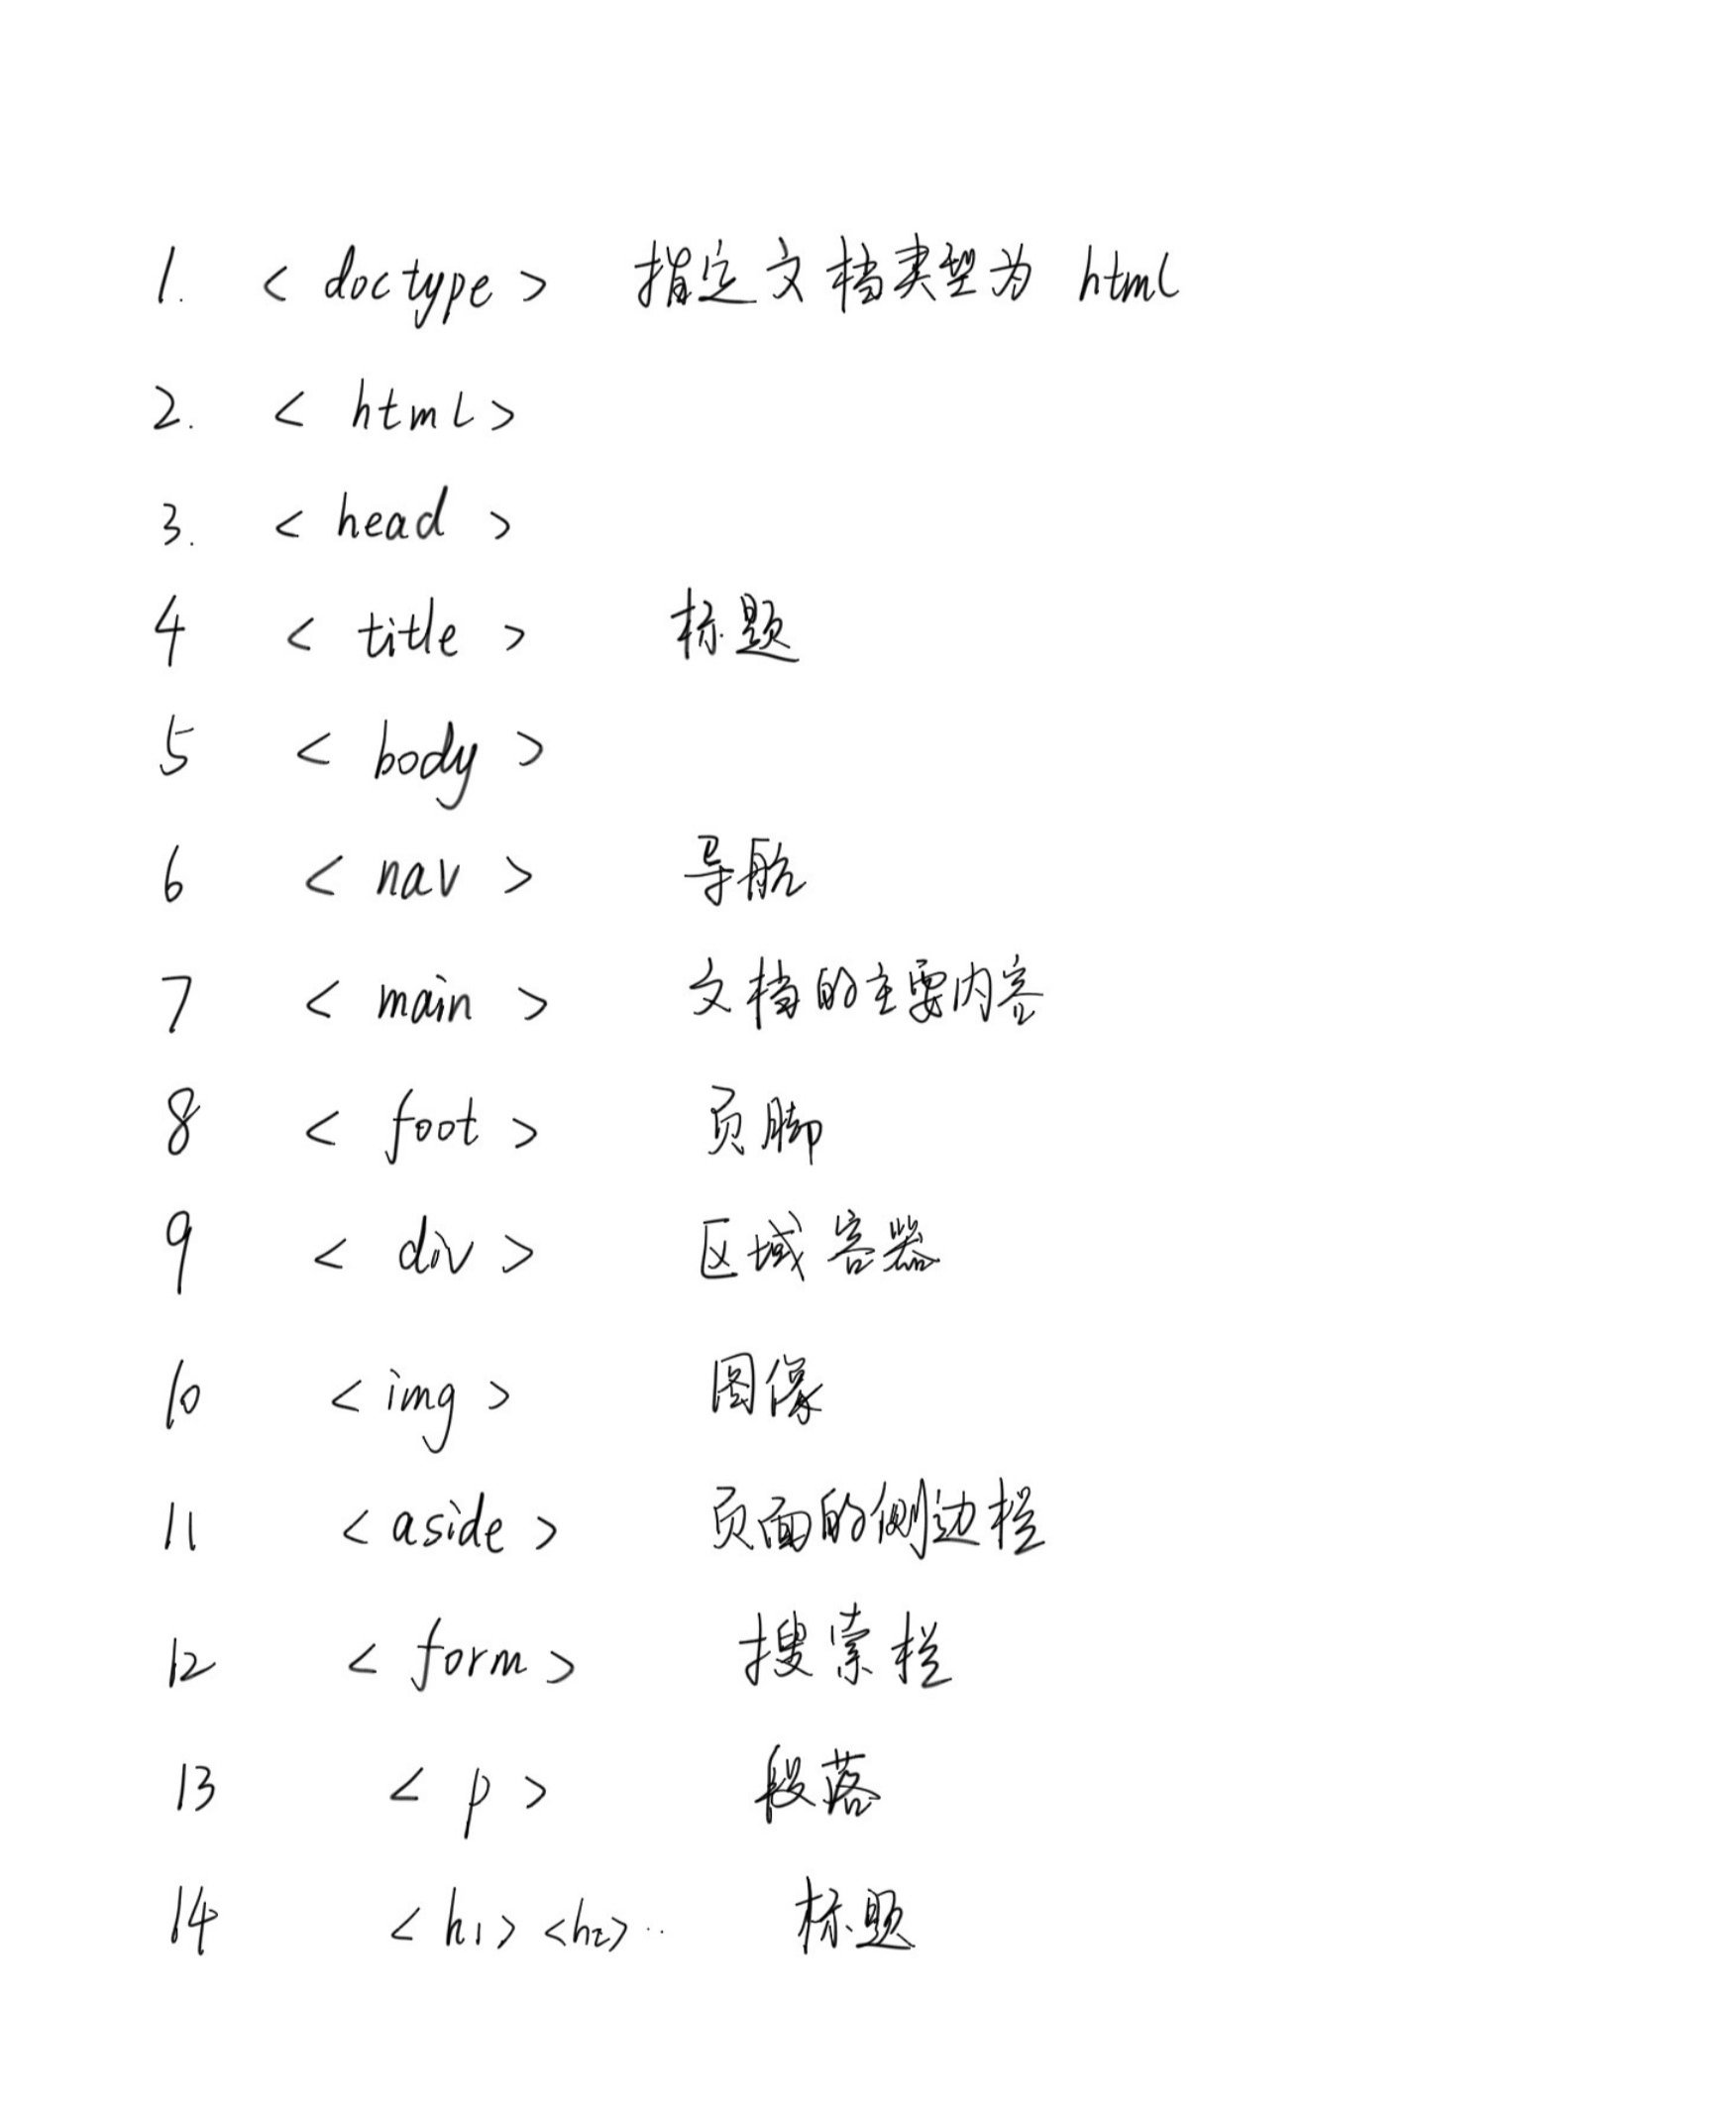 1. <doctype> 指定文档类型为 html
2. <html>
3. <head>
4 <title> 标题
5 <body>
6 <nav> 导航
7 <main> 文档的主要内容
8 <foot> 页脚
9 <div> 区域容器
10 <img> 图像
11 <aside> 页面的侧边栏
12 <form> 搜索栏
13 <p> 段落
14 <h1><h2>·· 标题